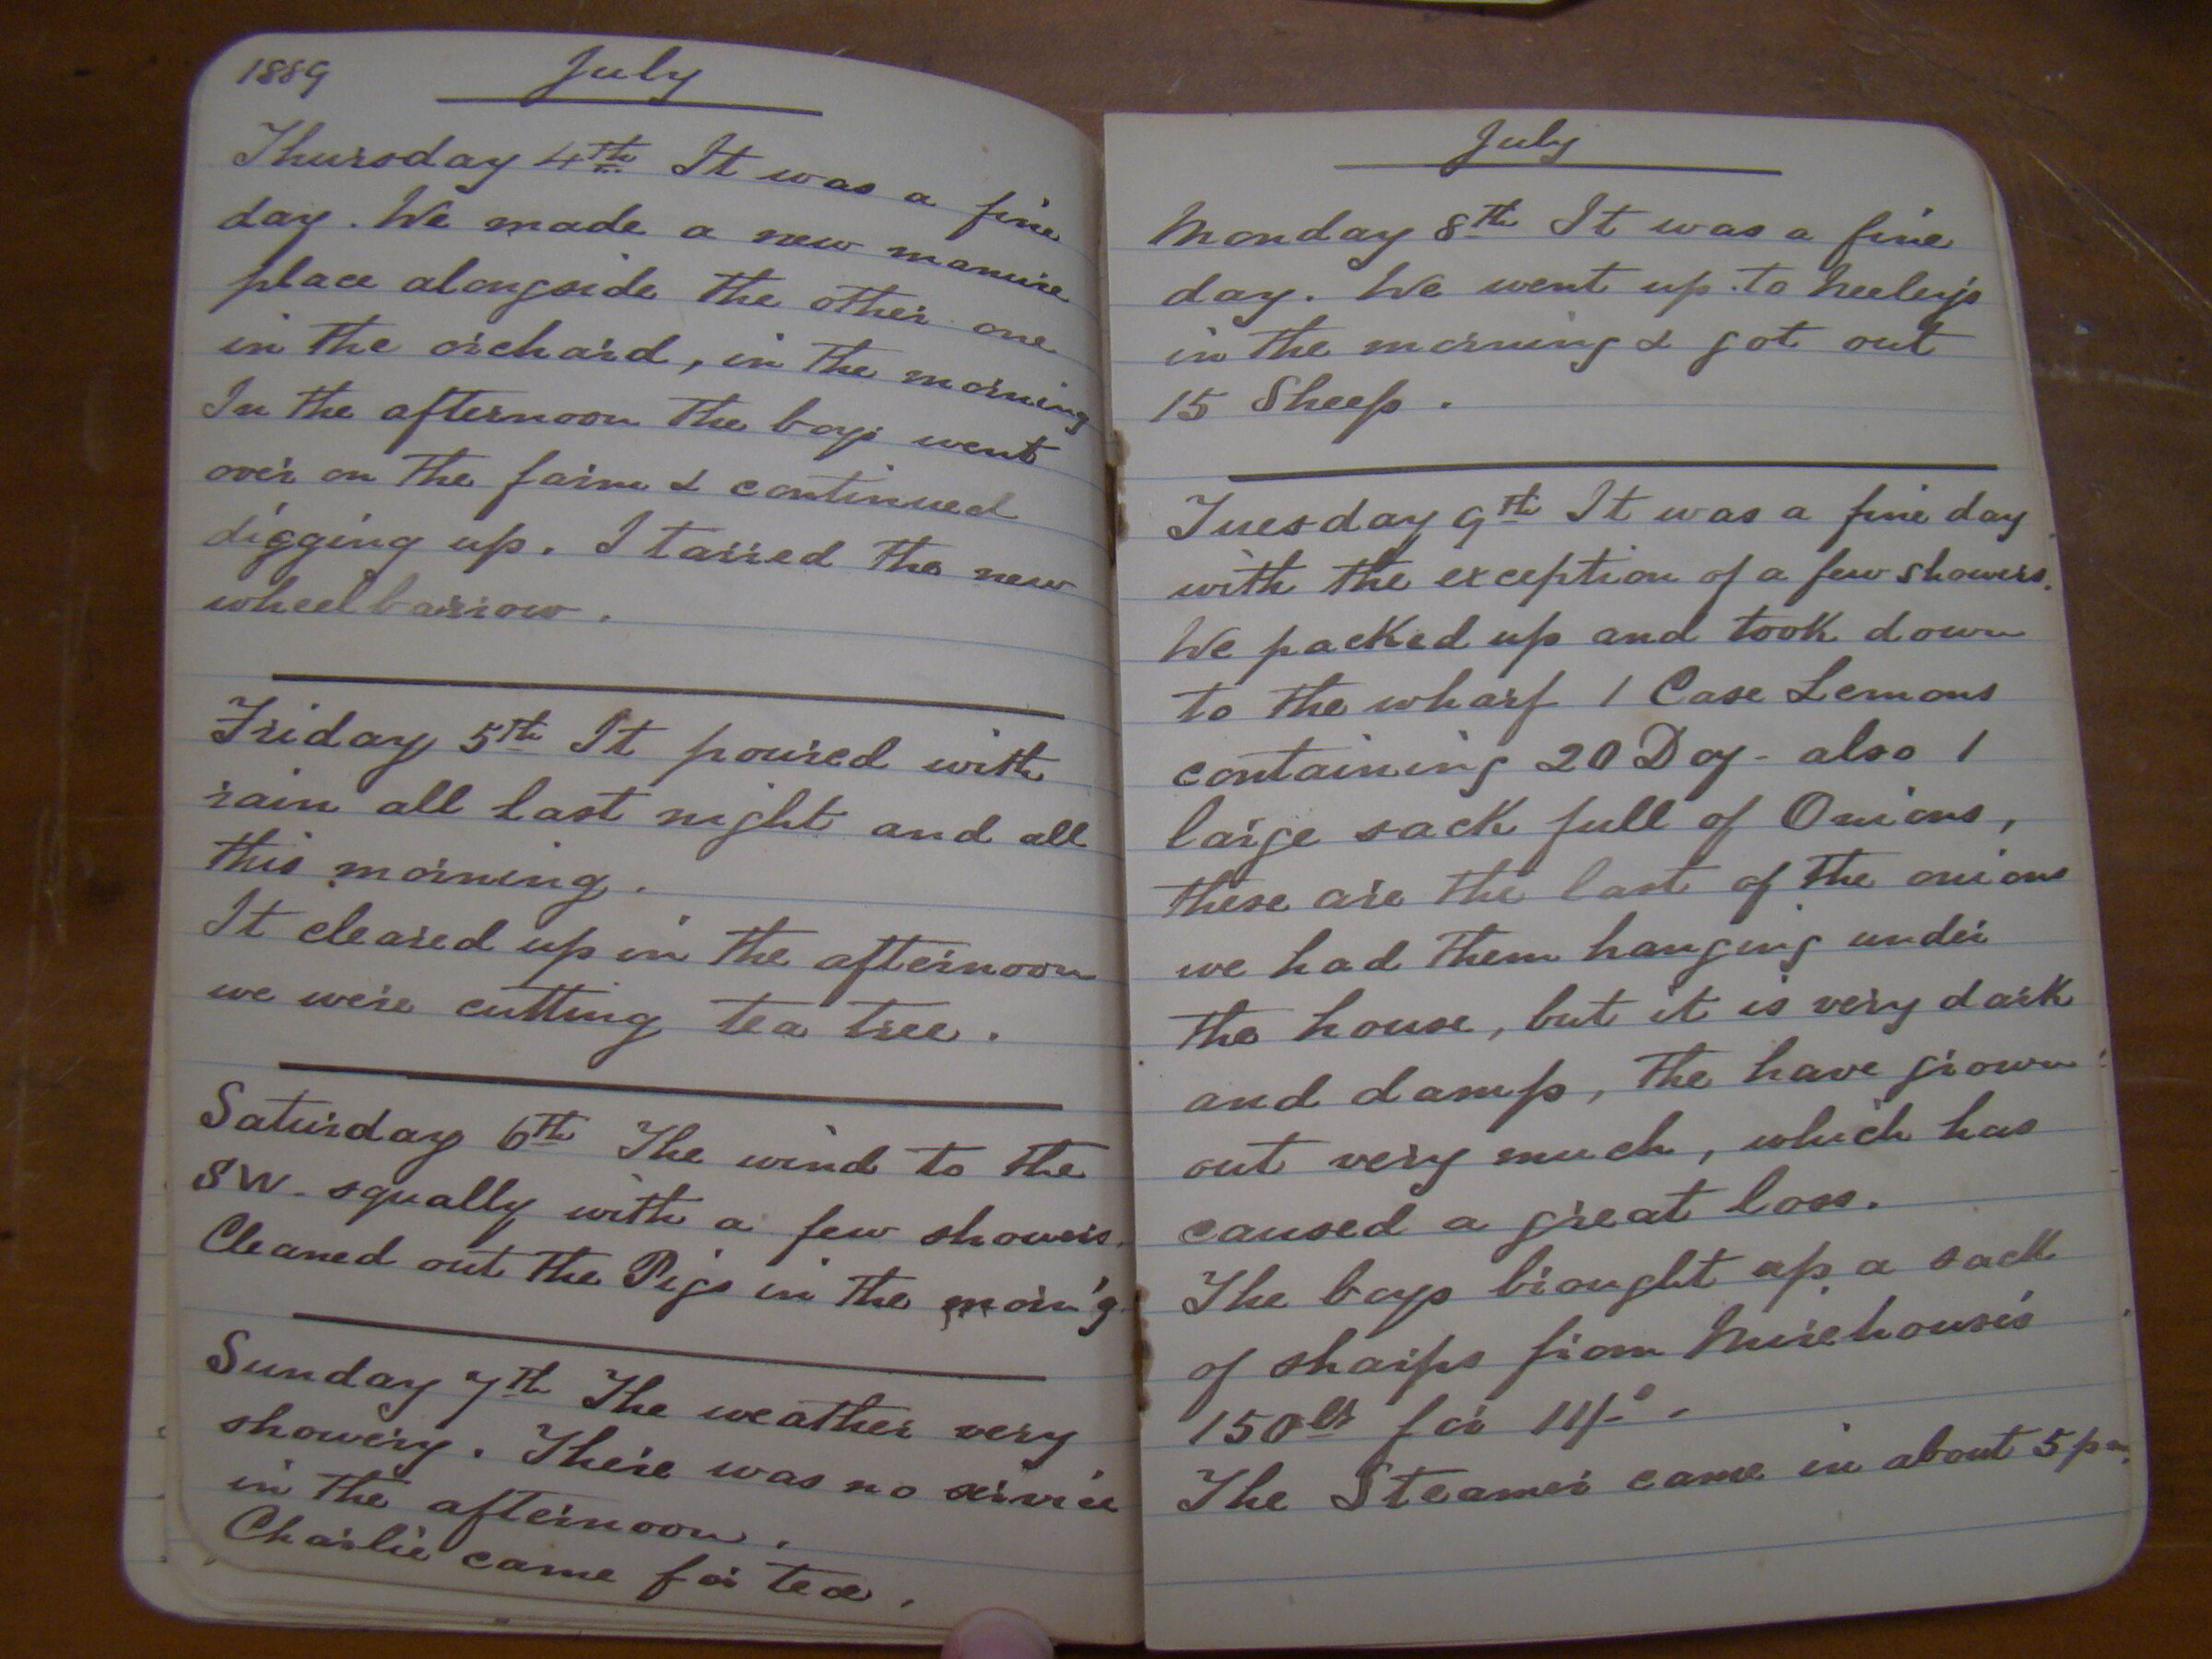 1889 July
Thursday 4th It was a fine
day. We made a new manure
place alongside the other one
in the orchard, in the morning
In the afternoon the boys went
over on the farm & continued
digging up. I tarred the new
wheelbarrow.
Friday 5th It poured with
rain all last night and all
this morning.
It cleared up in the afternoon
we were cutting tea tree.
Saturday 6th The wind to the
SW. squally with a few showers.
Cleaned out the Pigs in the morn'g
Sunday 7th The weather very
showery. There was no service
in the afternoon.
Charlie came for tea.
July
Monday 8th It was a fine
day. We went up to Neeley's
in the morning & got out
15 Sheep.
Tuesday 9th It was a fine day
with the exception of a few showers.
We packed up and took down
to the wharf 1 Case Lemons
containing 20 Doz - also 1
large sack full of Onions,
these are the last of the onions
we had them hanging under
the house, but it is very dark
and damp, the have grown
out very much, which has
caused a great loss.
The boys brought up a sack
of sharps from
150lbs for 11/-
The Steamer came in about 5pm.